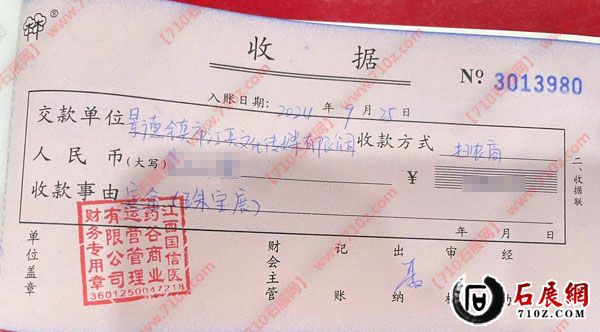 收 据
№ 3013980
入账日期: 2024 年 9 月 25 日
交款单位 景德镇市江天文化传媒有限公司 收款方式 扫农商
人民币(大写) ¥
收款事由 (玉珠宝展)
年 月 日
单位盖章 财会主管 记账 出纳 审 经
二、收据联
江西国信医药谷商业运营管理有限公司财务专用章
3601250047218
【710z石展网】www.710z.com
石展網
710Z.COM